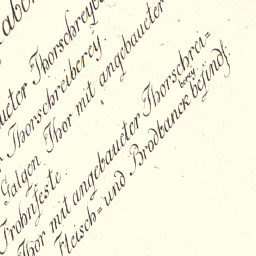 ueter Thorschreybe
Thorschreiberey.
Galgen Thor mit angebaueter
Frohnfeste.
Thor mit angebaueter Thorschrei=
berey
Fleisch= und Brodbanck befindl: